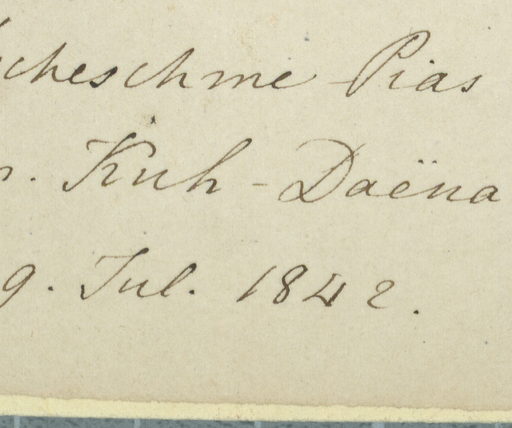 scheschme Pias
n. Kuh-Daëna
9. Jul. 1842.